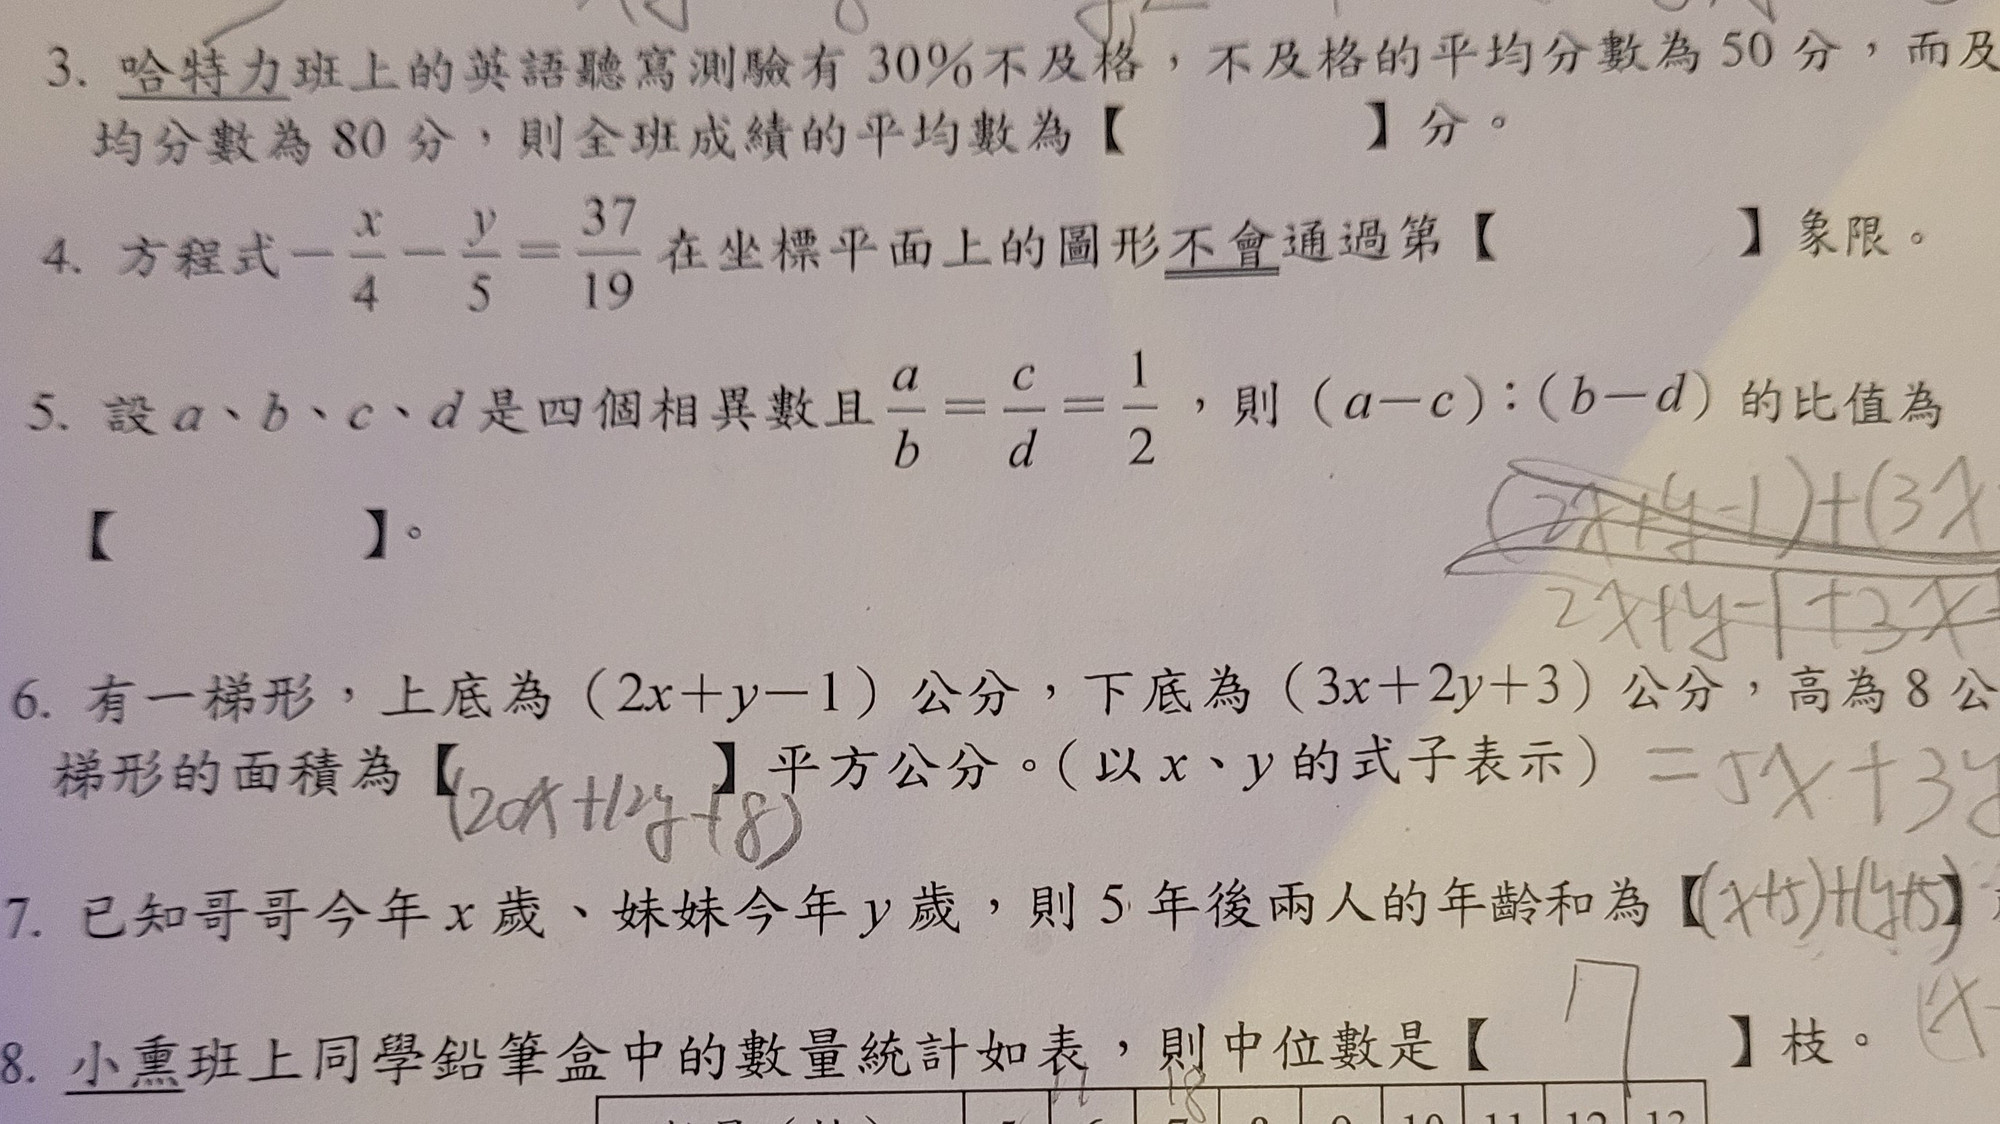 3. 哈特力班上的英語聽寫測驗有 30%不及格，不及格的平均分數為 50 分，而及
均分數為 80 分，則全班成績的平均數為【 】分。
4. 方程式－x/4－y/5＝37/19 在坐標平面上的圖形不會通過第【 】象限。
5. 設 a、b、c、d 是四個相異數且 a/b＝c/d＝1/2，則（a－c）：（b－d）的比值為
【 】。
(2x+y-1)+(3x
2x+y-1+3x
6. 有一梯形，上底為（2x＋y－1）公分，下底為（3x＋2y＋3）公分，高為 8 公
梯形的面積為【 】平方公分。（以 x、y 的式子表示） =5x+3y
(20x+12y+8)
7. 已知哥哥今年 x 歲、妹妹今年 y 歲，則 5 年後兩人的年齡和為【(x+5)+(y+5)】
(x-
8. 小熏班上同學鉛筆盒中的數量統計如表，則中位數是【 7 】枝。
11 18
5 6 7 8 9 10 11 12 13